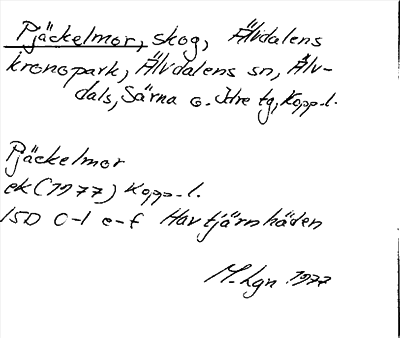 Pjäckelmor, skog, Älvdalens
kronopark, Älvdalens sn, Älv-
dals, Särna o. Idre tg, Kopp. l.
Pjäckelmor
ek (1977) Kopp. l.
15D 0-1 e-f Havtjärnhäden
M. Lgn 1977